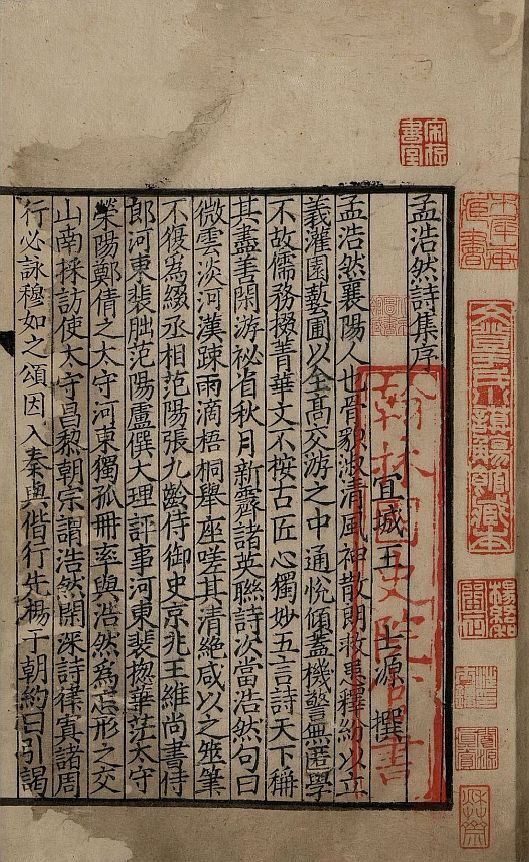 宋存書室
孟浩然詩集序
翰林國史院官書
宜城王 士源 撰
孟浩然襄陽人也骨貌淑清風神散朗救患釋紛以立
義灌園藝圃以全高交游之中通恱傾蓋機警無匿學
不故儒務掇菁華文不按古匠心獨妙五言詩天下稱
其盡善閑游祕省秋月新霽諸英聯詩次當浩然句曰
微雲淡河漢疎雨滴梧桐舉座嗟其清絕咸以之筆
不復爲綴丞相范陽張九齡侍御史京兆王維尚書侍
郎河東裴朏范陽盧僎大理評事河東裴揔華茫太守
榮陽鄭倩之太守河東獨孤冊率與浩然爲忘形之交
山南採訪使太守昌黎朝宗謂浩然閑深詩律寘諸周
行必詠穆如之頌因入秦與偕行先楊于朝約日引謁